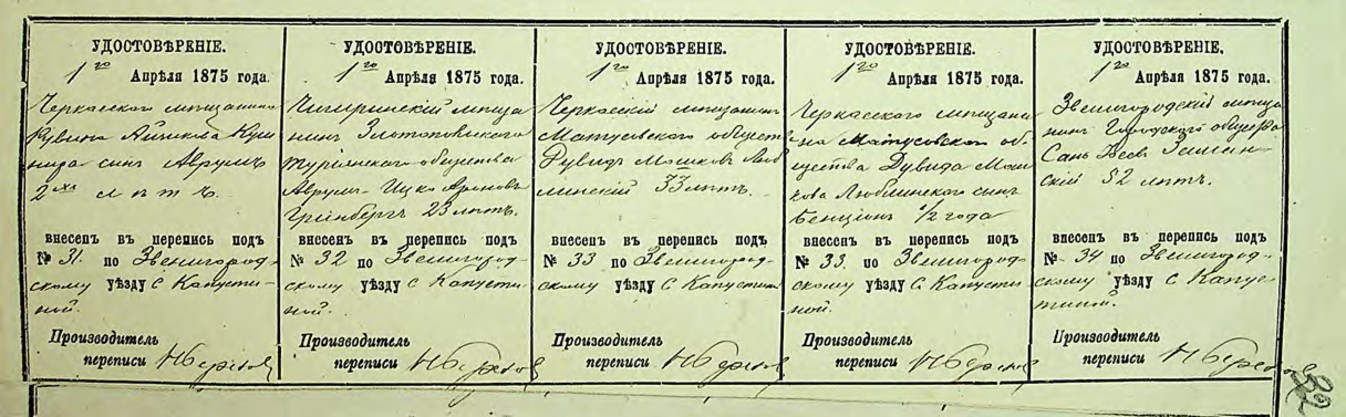 УДОСТОВѢРЕНІЕ.
1го Апрѣля 1875 года.
Черкасскаго мѣщанина
Рувина Айзикова Куш
нира сынъ Аврумъ
2хъ лѣтъ.
внесенъ въ перепись подъ
№ 31. по Звенигород-
скому уѣзду С Капусти-
ной.
Производитель
переписи
УДОСТОВѢРЕНІЕ.
1го Апрѣля 1875 года.
Чигиринскій мѣща
нинъ Златопольскаго
общества
Аврумъ-Ицко Ароновъ
Гринбергъ 23 лѣтъ.
внесенъ въ перепись подъ
№ 32 по Звенигород-
скому уѣзду С Капусти
ной.
Производитель
переписи
УДОСТОВѢРЕНІЕ.
1го Апрѣля 1875 года.
Черкасскій мѣщанинъ
Матусовскаго обществ
Дувидъ Мошковъ Люб
линскій 33 лѣтъ.
внесенъ въ перепись подъ
№ 33 по Звенигород-
скому уѣзду С Капустиной
Производитель
переписи
УДОСТОВѢРЕНІЕ.
1го Апрѣля 1875 года.
Черкасскаго мѣщани
на Матусовскаго об-
щества Дувида Мош
кова Люблинскаго сынъ
Бенціонъ 1/2 года
внесенъ въ перепись подъ
№ 33. по Звенигород-
скому уѣзду С. Капусти
ной.
Производитель
переписи
УДОСТОВѢРЕНІЕ.
1го Апрѣля 1875 года.
Звенигородскій мѣща
нинъ Городскаго общества
скій 52 лѣтъ.
внесенъ въ перепись подъ
№ 34 по Звенигород-
скому уѣзду С Капус-
тиной.
Производитель
переписи